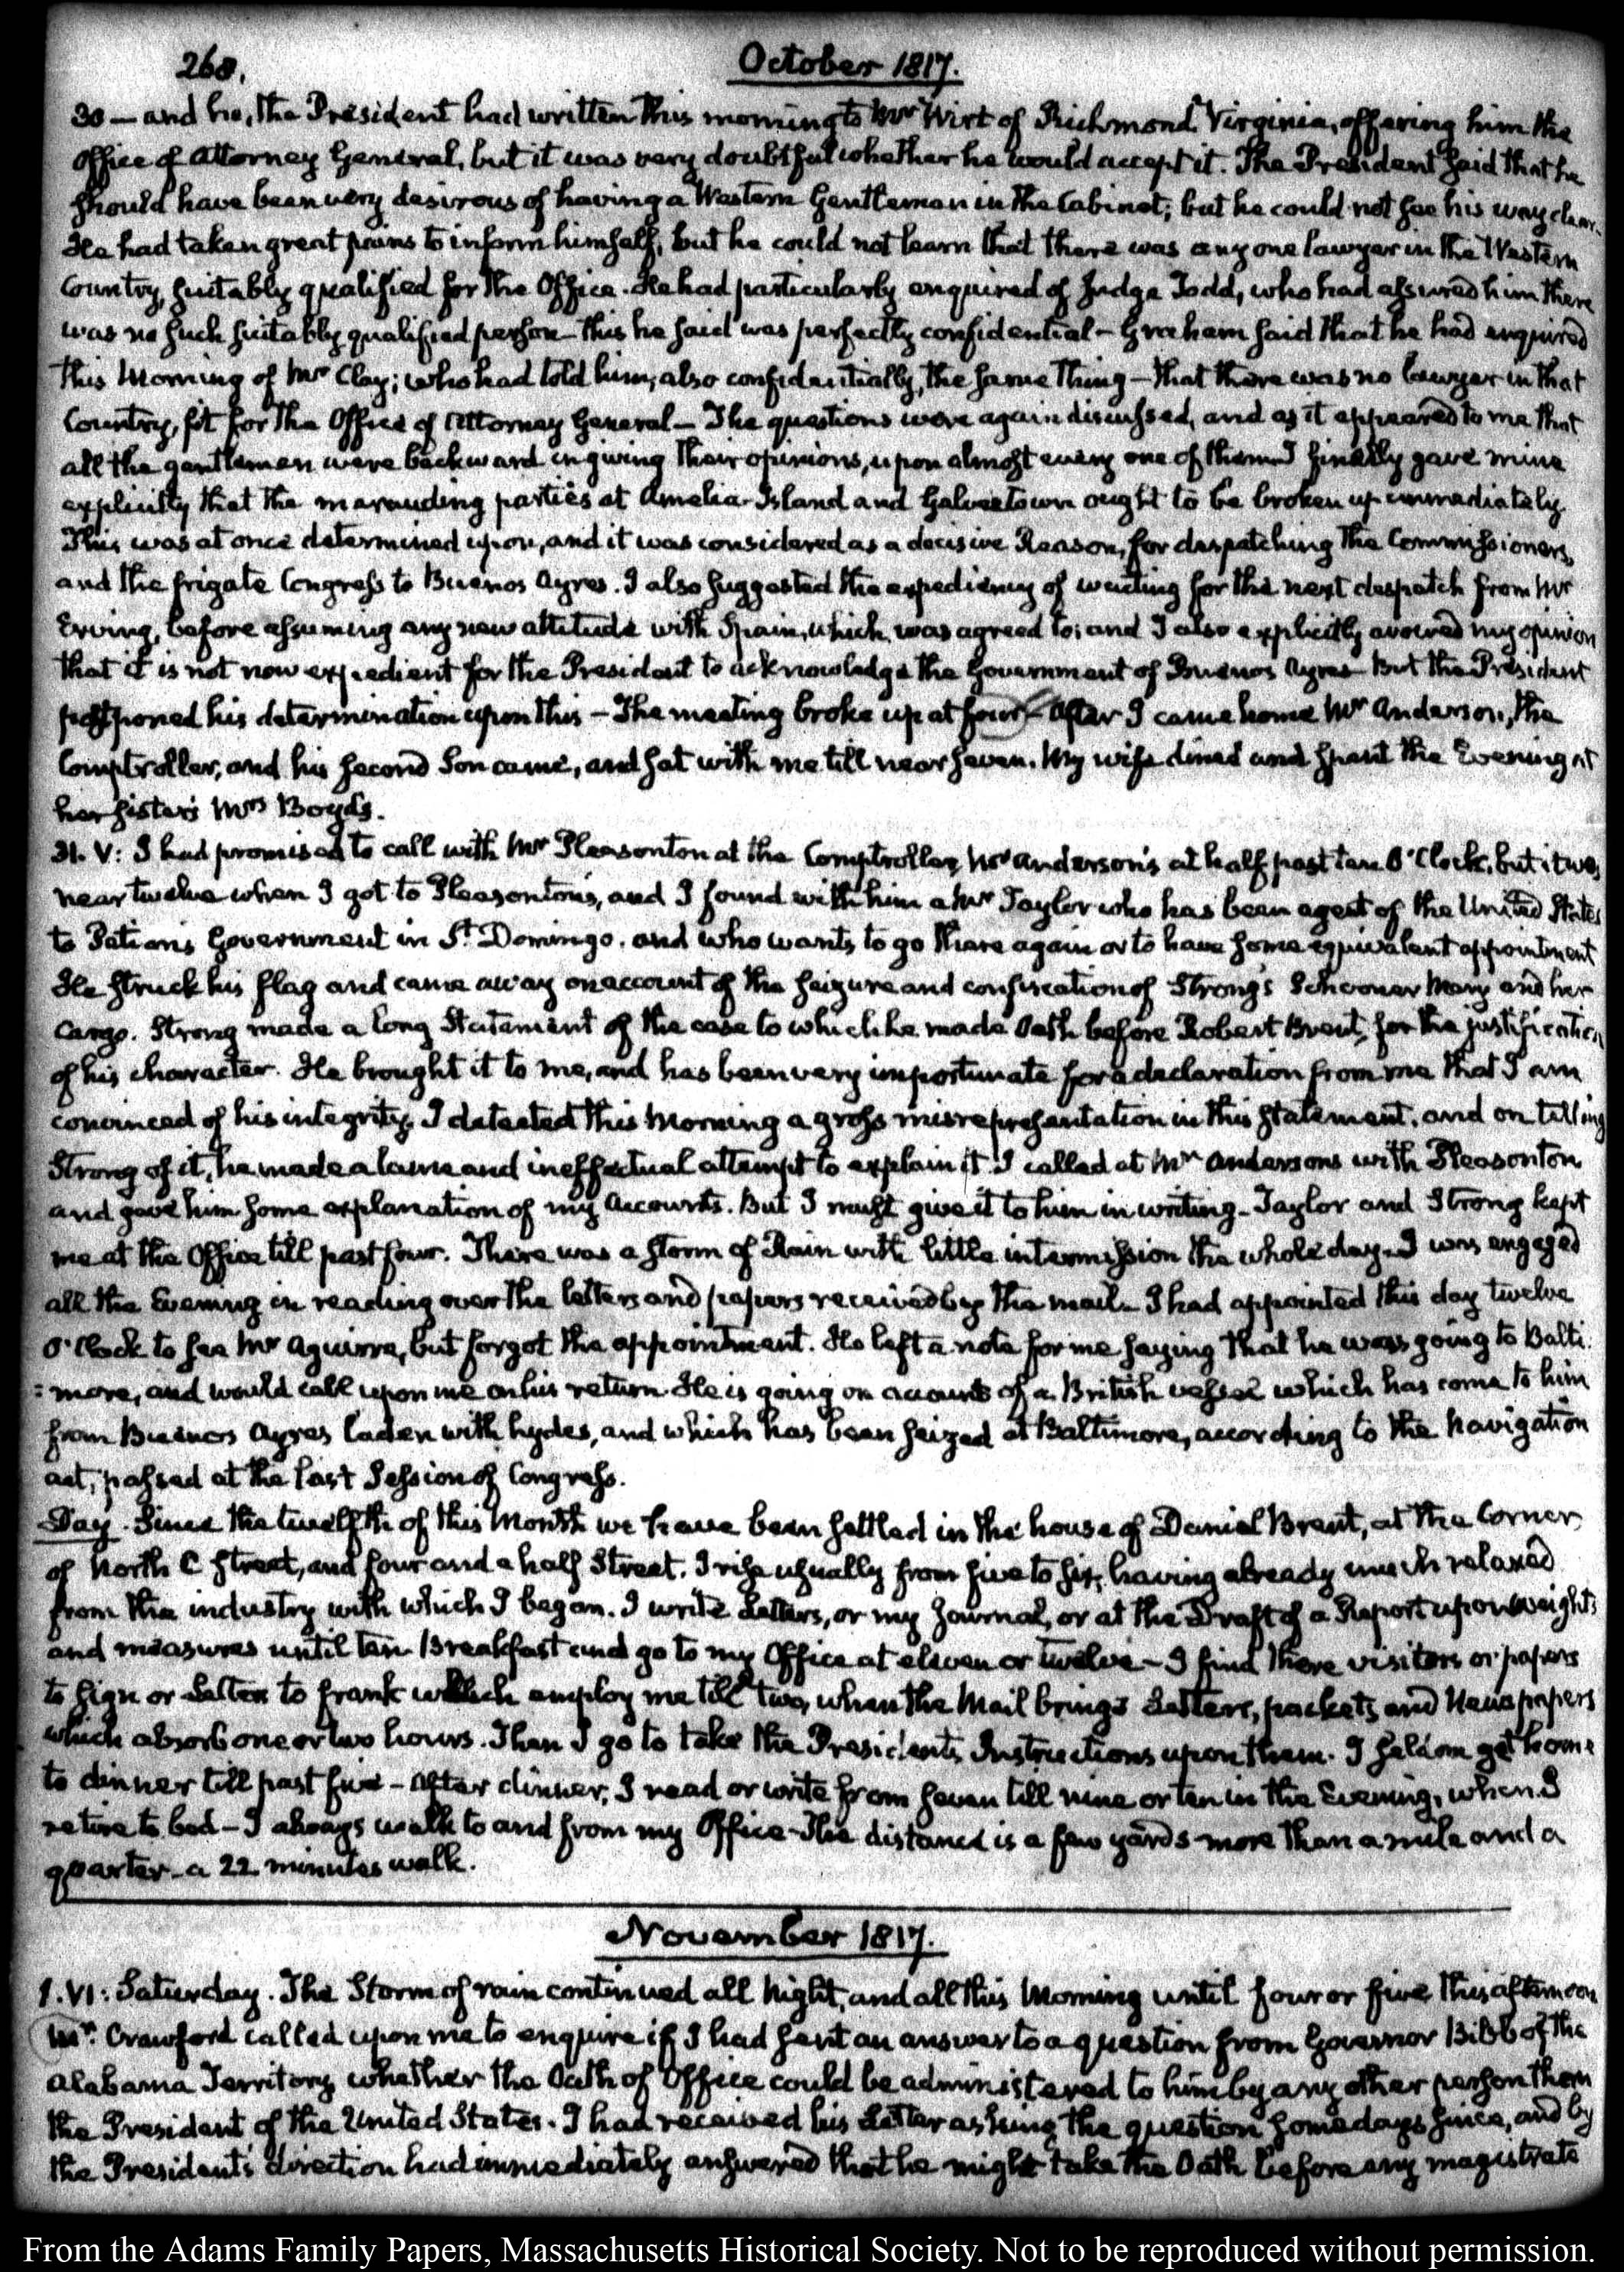 268.
October 1817.
30 — and he, the President had written this morning to Mr Wirt of Richmond Virginia, offering him the
Office of Attorney General, but it was very doubtful whether he would accept it. The President said that he
should have been very desirous of having a Western Gentleman in the Cabinet; but he could not see his way clear.
He had taken great pains to inform himself, but he could not learn that there was any one lawyer in the Western
Country, suitably qualified for the Office. He had particularly enquired of Judge Todd, who had assured him there
was no such suitably qualified person — This he said was perfectly confidential — Graham said that he had enquired
this Morning of Mr Clay; who had told him, also confidentially, the same thing — that there was no lawyer in that
Country, fit for the Office of Attorney General — The questions were again discussed, and as it appeared to me that
all the gentlemen were backward in giving their opinions, upon almost every one of them I finally gave mine
explicitly that the marauding parties at Amelia Island and Galveztown ought to be broken up immediately.
This was at once determined upon, and it was considered as a decisive Reason, for despatching the Commissioners,
and the frigate Congress to Buenos Ayres. I also suggested the expediency of waiting for the next despatch from Mr
Erving, before assuming any new attitude with Spain, which was agreed to; and I also explicitly avowed my opinion
that it is not now expedient for the President to acknowledge the Government of Buenos Ayres — But the President
postponed his determination upon this — The meeting broke up at four — After I came home Mr Anderson, the
Comptroller, and his second Son came, and sat with me till near seven. My wife dined and spent the Evening at
her sister's Mrs Boyd's.
31. V: I had promised to call with Mr Pleasonton at the Comptroller, Mr Anderson's at half past ten O'Clock, but it was
near twelve when I got to Pleasonton's, and I found with him a Mr Taylor who has been agent of the United States
to Petion's Government in St. Domingo. and who wants to go there again or to have some equivalent appointment
He struck his flag and came away on account of the seizure and confiscation of Strong's Schooner Mary and her
Cargo. Strong made a long Statement of the case to which he made Oath before Robert Brent, for the justification
of his character. He brought it to me, and has been very importunate for a declaration from me that I am
convinced of his integrity. I detected this Morning a gross misrepresentation in this statement. and on telling
Strong of it, he made a lame and ineffectual attempt to explain it. I called at Mr Andersons with Pleasonton
and gave him some explanation of my Accounts. But I must give it to him in writing — Taylor and Strong kept
me at the Office till past four. There was a storm of Rain with little intermission the whole day. I was engaged
all the Evening in reading over the letters and papers received by the mail — I had appointed this day twelve
O'Clock to see Mr Aguirre, but forgot the appointment. He left a note for me saying that he was going to Balti:
:more, and would call upon me on his return. He is going on account of a British vessel which has come to him
from Buenos Ayres laden with hydes, and which has been seized at Baltimore, according to the Navigation
act, passed at the last Session of Congress.
Day. Since the twelfth of this Month we have been settled in the house of Daniel Brent, at the Corner
of North C Street, and four and a half Street. I rise usually from five to six, having already much relaxed
from the industry with which I began. I write Letters, or my Journal, or at the Draft of a Report upon weights
and measures until ten Breakfast and go to my Office at eleven or twelve — I find there visitors or papers
to sign or Letters to frank which employ me till two, when the Mail brings Letters, packets and Newspapers
which absorb one or two hours. Then I go to take the President's Instructions upon them. I seldom get home
to dinner till past five — After dinner, I read or write from seven till nine or ten in the Evening, when I
retire to bed — I always walk to and from my Office — The distance is a few yards more than a mile and a
quarter — a 22 minutes walk.
November 1817.
1. VI: Saturday. The Storm of rain continued all Night, and all this Morning until four or five this afternoon
Mr. Crawford called upon me to enquire if I had sent an answer to a question from Governor Bibb of the
Alabama Territory whether the Oath of Office could be administered to him by any other person then
the President of the United States. I had received his Letter asking the question some days since, and by
the President's direction had immediately answered that he might take the Oath before any magistrate
From the Adams Family Papers, Massachusetts Historical Society. Not to be reproduced without permission.